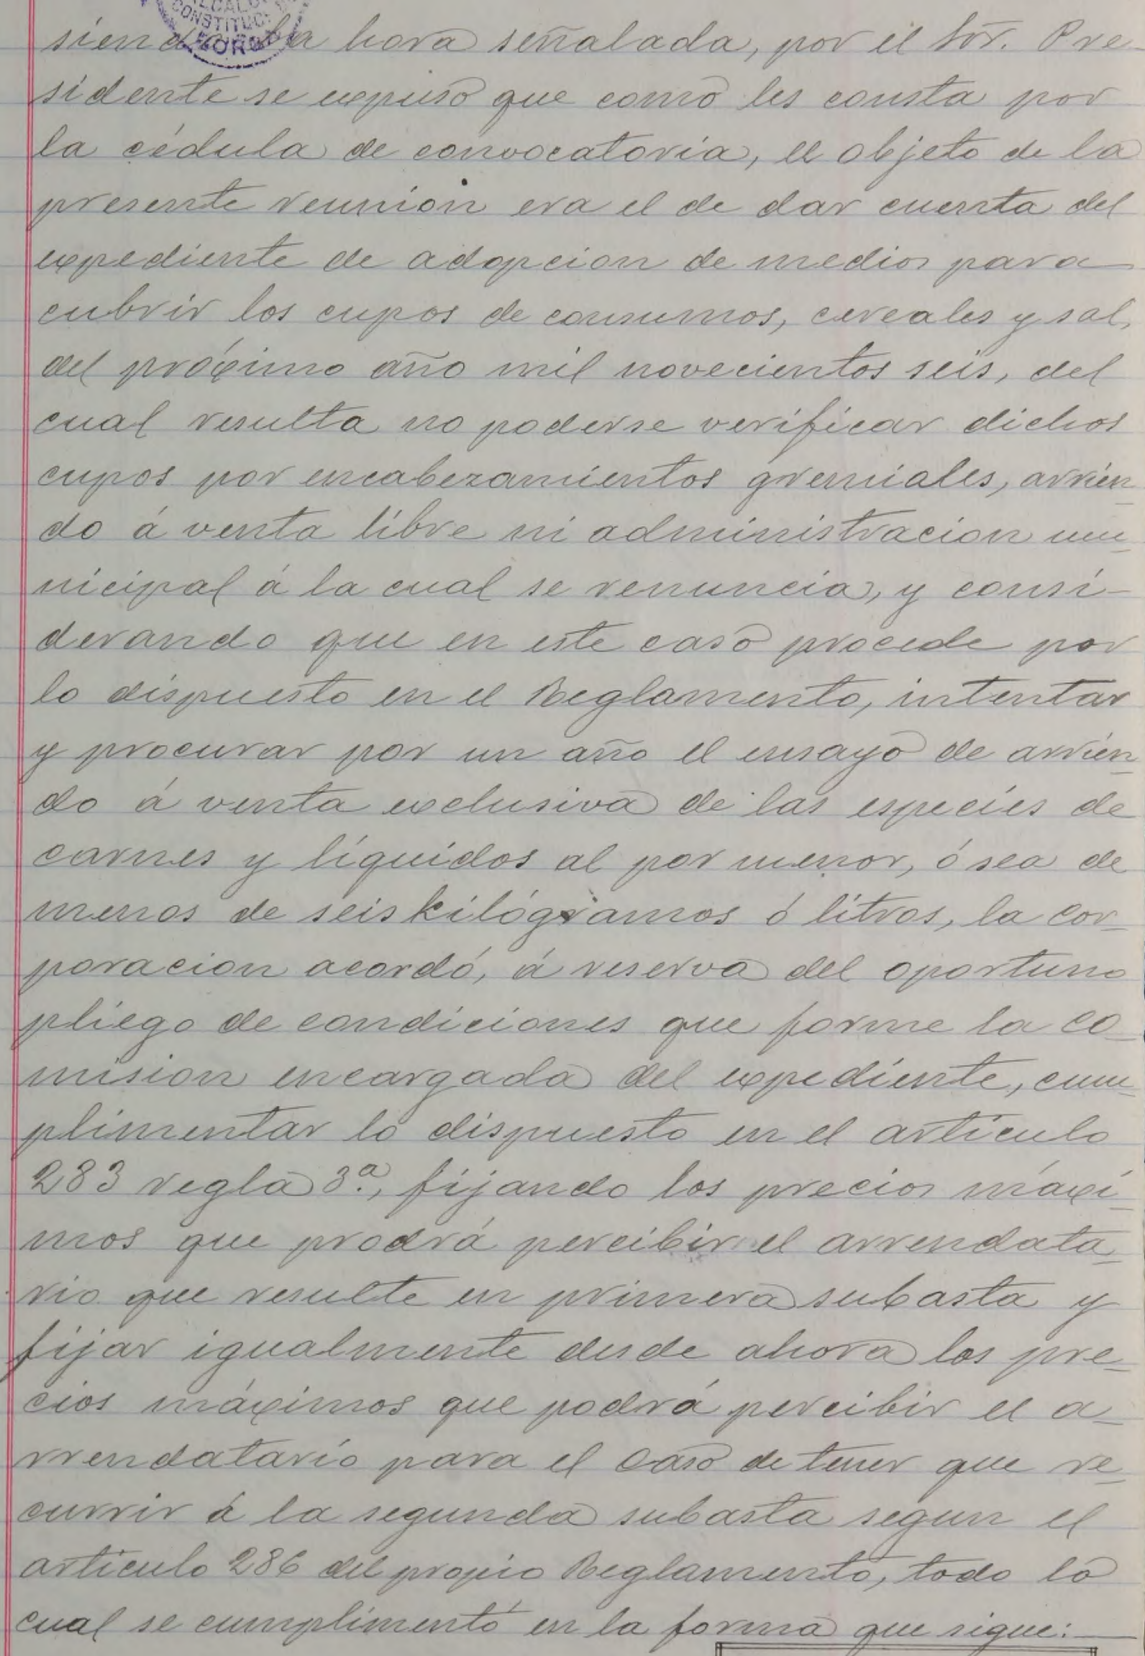 ALCAL
CONSTITUC
siendo la hora señalada, por el Sor. Pre-
sidente se expuso que como les consta por
la cédula de convocatoria, el objeto de la
presente reunión era el de dar cuenta del
expediente de adopcion de medios para
cubrir los cupos de consumos, cereales y sal,
del próximo año mil novecientos seis, del
cual resulta no poderse verificar dichos
cupos por encabezamientos gremiales, arrien-
do á venta libre ni administracion mu-
nicipal á la cual se renuncia, y consi-
derando que en este caso procede por
lo dispuesto en el Reglamento, intentar
y procurar por un año el ensayo de arrien-
do á venta exclusiva de las especies de
carnes y liquidos al por menor, ó sea de
menos de seis kilógramos ó litros, la cor-
poracion acordó, á reserva del oportuno
pliego de condiciones que forme la co-
mision encargada del expediente, cum-
plimentar lo dispuesto en el articulo
283 regla 3ª., fijando los precios máxi-
mos que prodrá percibir el arrendata-
rio que resulte en primera subasta y
fijar igualmente desde ahora los pre-
cios máximos que podrá percibir el a-
rrendatario para el caso de tener que re-
currir á la segunda subasta segun el
articulo 286 del propio Reglamento, todo lo
cual se cumplimentó en la forma que sigue: